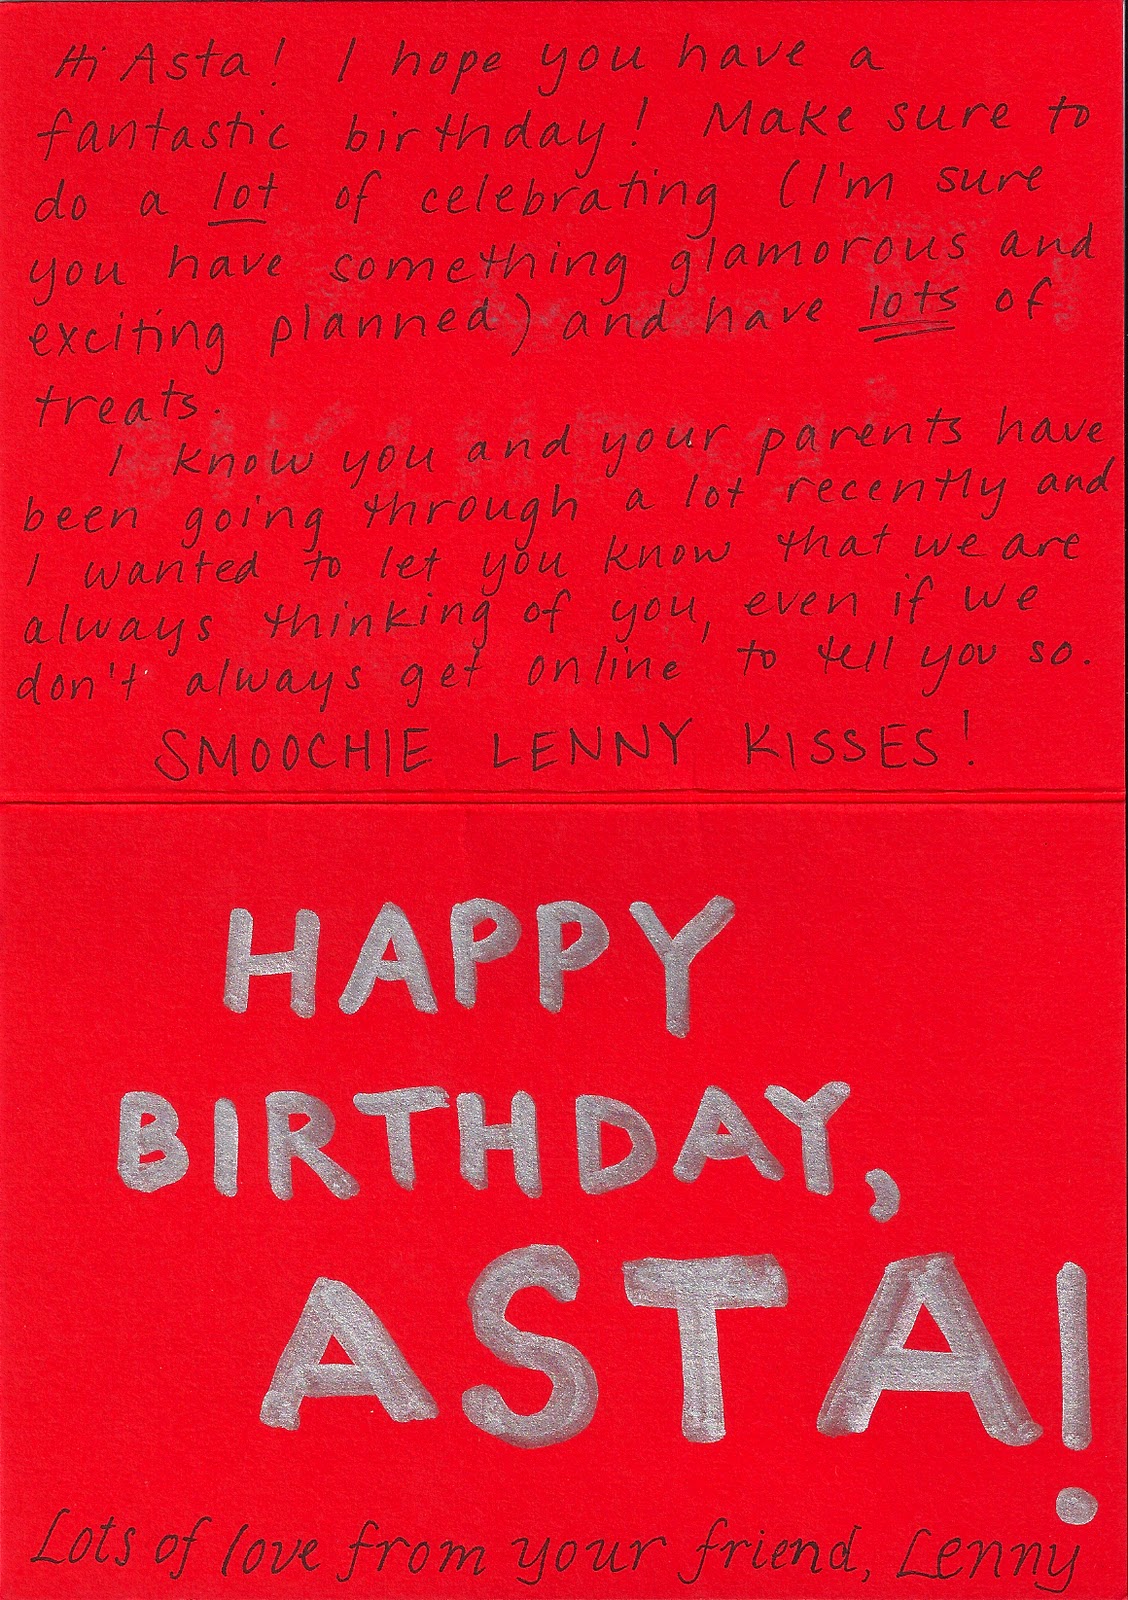 Hi Asta! I hope you have a
fantastic birthday! Make sure to
do a lot of celebrating (I'm sure
you have something glamorous and
exciting planned) and have lots of
treats.
I know you and your parents have
been going through a lot recently and
I wanted to let you know that we are
always thinking of you, even if we
don't always get online to tell you so.
SMOOCHIE LENNY KISSES!
HAPPY
BIRTHDAY,
ASTA!
Lots of love from your friend, Lenny